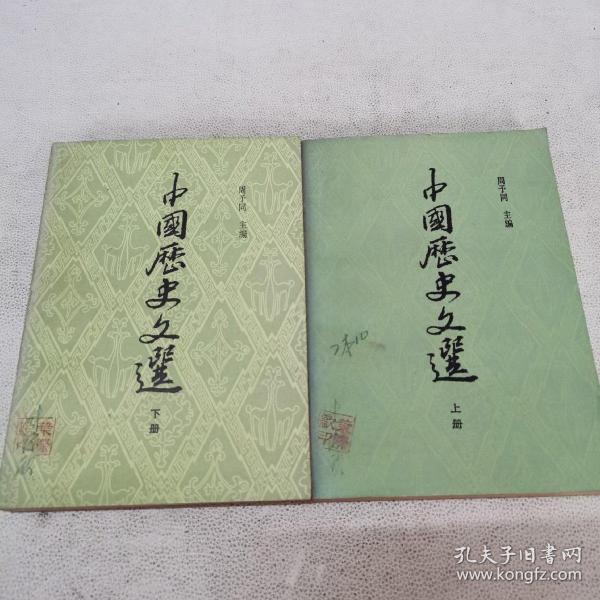 中國歷史文選
周予同 主編
下册
中國歷史文選
周予同 主編
上册
2本10
孔夫子旧书网
www.kongfz.com